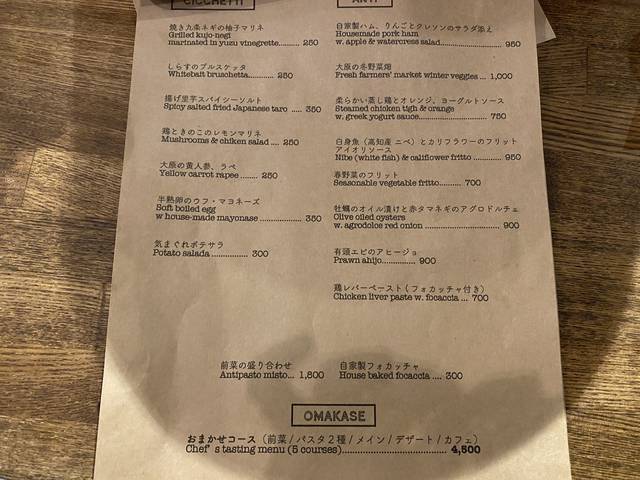 CICCHETTI
焼き九条ネギの柚子マリネ
Grilled kujo-negi
marinated in yuzu vinegrette......... 250
しらすのブルスケッタ
Whitebait bruschetta.......... 250
揚げ里芋スパイシーソルト
Spicy salted fried Japanese taro ..... 350
鶏ときのこのレモンマリネ
Mushrooms & chiken salad .... 250
大原の黄人参、ラペ
Yellow carrot rapee ........ 250
半熟卵のウフ・マヨネーズ
Soft boiled egg
w house-made mayonase ............... 350
気まぐれポテサラ
Potato salada ................. 300
ANTI
自家製ハム、りんごとクレソンのサラダ添え
Housemade pork ham
w. apple & watercress salad.................... 950
大原の冬野菜畑
Fresh farmers' market winter veggies ... 1,000
柔らかい蒸し鶏とオレンジ、ヨーグルトソース
Steamed chicken tigh & orange
w. greek yogurt sauce...................... 750
白身魚（高知産 ニベ）とカリフラワーのフリット
アイオリソース
Nibe (white fish) & califlower fritto .......... 950
春野菜のフリット
Seasonable vegetable fritto.......... 700
牡蠣のオイル漬けと赤タマネギのアグロドルチェ
Olive oiled oysters
w. agrodolce red onion ......................... 900
有頭エビのアヒージョ
Prawn ahijo............... 900
鶏レバーペースト（フォカッチャ付き）
Chicken liver paste w. focaccia ... 700
前菜の盛り合わせ
Antipasto misto... 1,800
自家製フォカッチャ
House baked focaccia .... 300
OMAKASE
おまかせコース（前菜/パスタ2種/メイン/デザート/カフェ）
Chef's tasting menu (5 courses)............................ 4,500